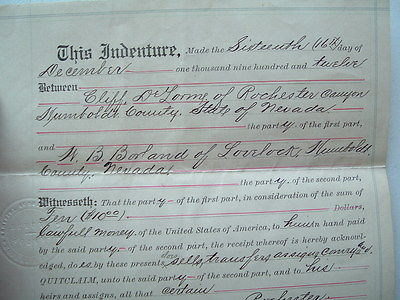 This Indenture, Made the Sixteenth (16th) day of
December one thousand nine hundred and twelve
Between Cliff DeLorme of Rochester Canyon
Humboldt County, State of Nevada
the party of the first part,
and W. B. Borland of Lovelock, Humboldt
County, Nevada
the party of the second part,
Witnesseth: That the party of the first part, in consideration of the sum of
Ten ($10.00) Dollars,
Lawfull money of the United States of America, to him in hand paid
by the said party of the second part, the receipt whereof is hereby acknowl-
edged, does by these presents sells, transfers, assigns, conveys and
QUITCLAIM, unto the said party of the second part, and to his
heirs and assigns, all that certain
Rochester